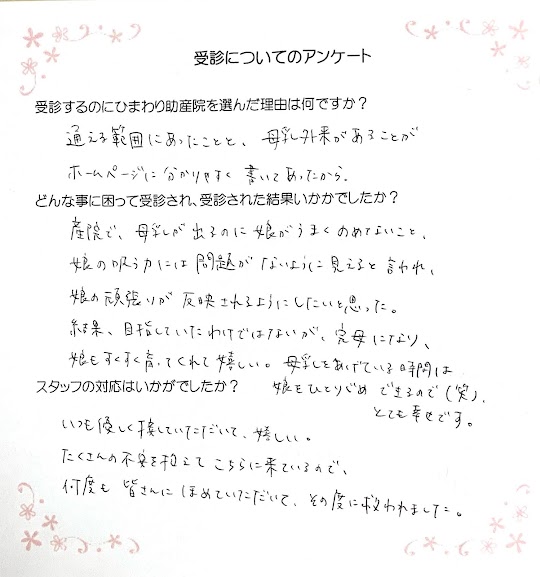 受診についてのアンケート
受診するのにひまわり助産院を選んだ理由は何ですか？
通える範囲にあったことと、母乳外来があることが
ホームページに分かりやすく書いてあったから。
どんな事に困って受診され、受診された結果いかかでしたか？
産院で、母乳が出るのに娘がうまくのめてないこと、
娘の吸う力には問題がないように見えると言われ、
娘の頑張りが反映されるようにしたいと思った。
結果、目指していたわけではないが、完母になり、
娘もすくすく育ってくれて嬉しい。母乳をあげている時間は
娘をひとりじめできるので（笑）、
とても幸せです。
スタッフの対応はいかがでしたか？
いつも優しく接していただいて、嬉しい。
たくさんの不安を抱えてこちらに来ているので、
何度も皆さんにほめていただいて、その度に救われました。